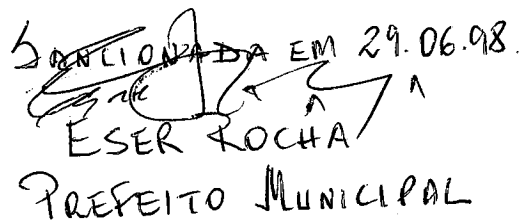 SANCIONADA EM 29.06.98.
ESER ROCHA
PREFEITO MUNICIPAL